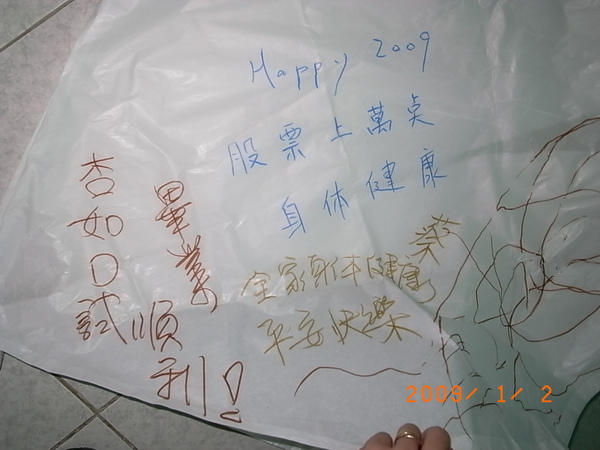 Happy 2009
股票上萬点
身体健康
全家身体健康
平安快樂
榮
杏如口試
畢業順利!
2009/ 1/ 2